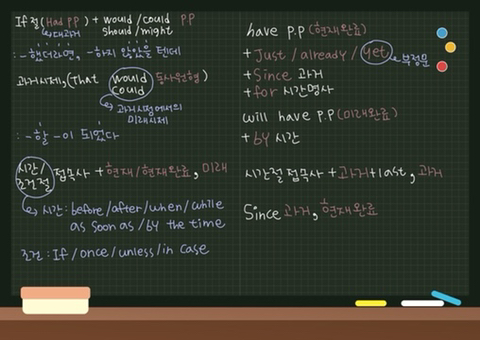 If절(Had PP) + would/could PP
should/might
대과거
: -했더라면, -하지 않았을 텐데
과거시제,(that would 동사원형)
could
과거시점에서의
미래시제
: -할 -이 되었다
시간/
조건절
접속사 + 현재/현재완료, 미래
시간: before/after/when/while
as soon as /by the time
조건: If/once/unless/in case
have p.p (현재완료)
+ Just / already / yet
부정문
+ Since 과거
+ for 시간명사
will have p.p (미래완료)
+ by 시간
시간절 접속사 + 과거+last, 과거
Since 과거, 현재완료